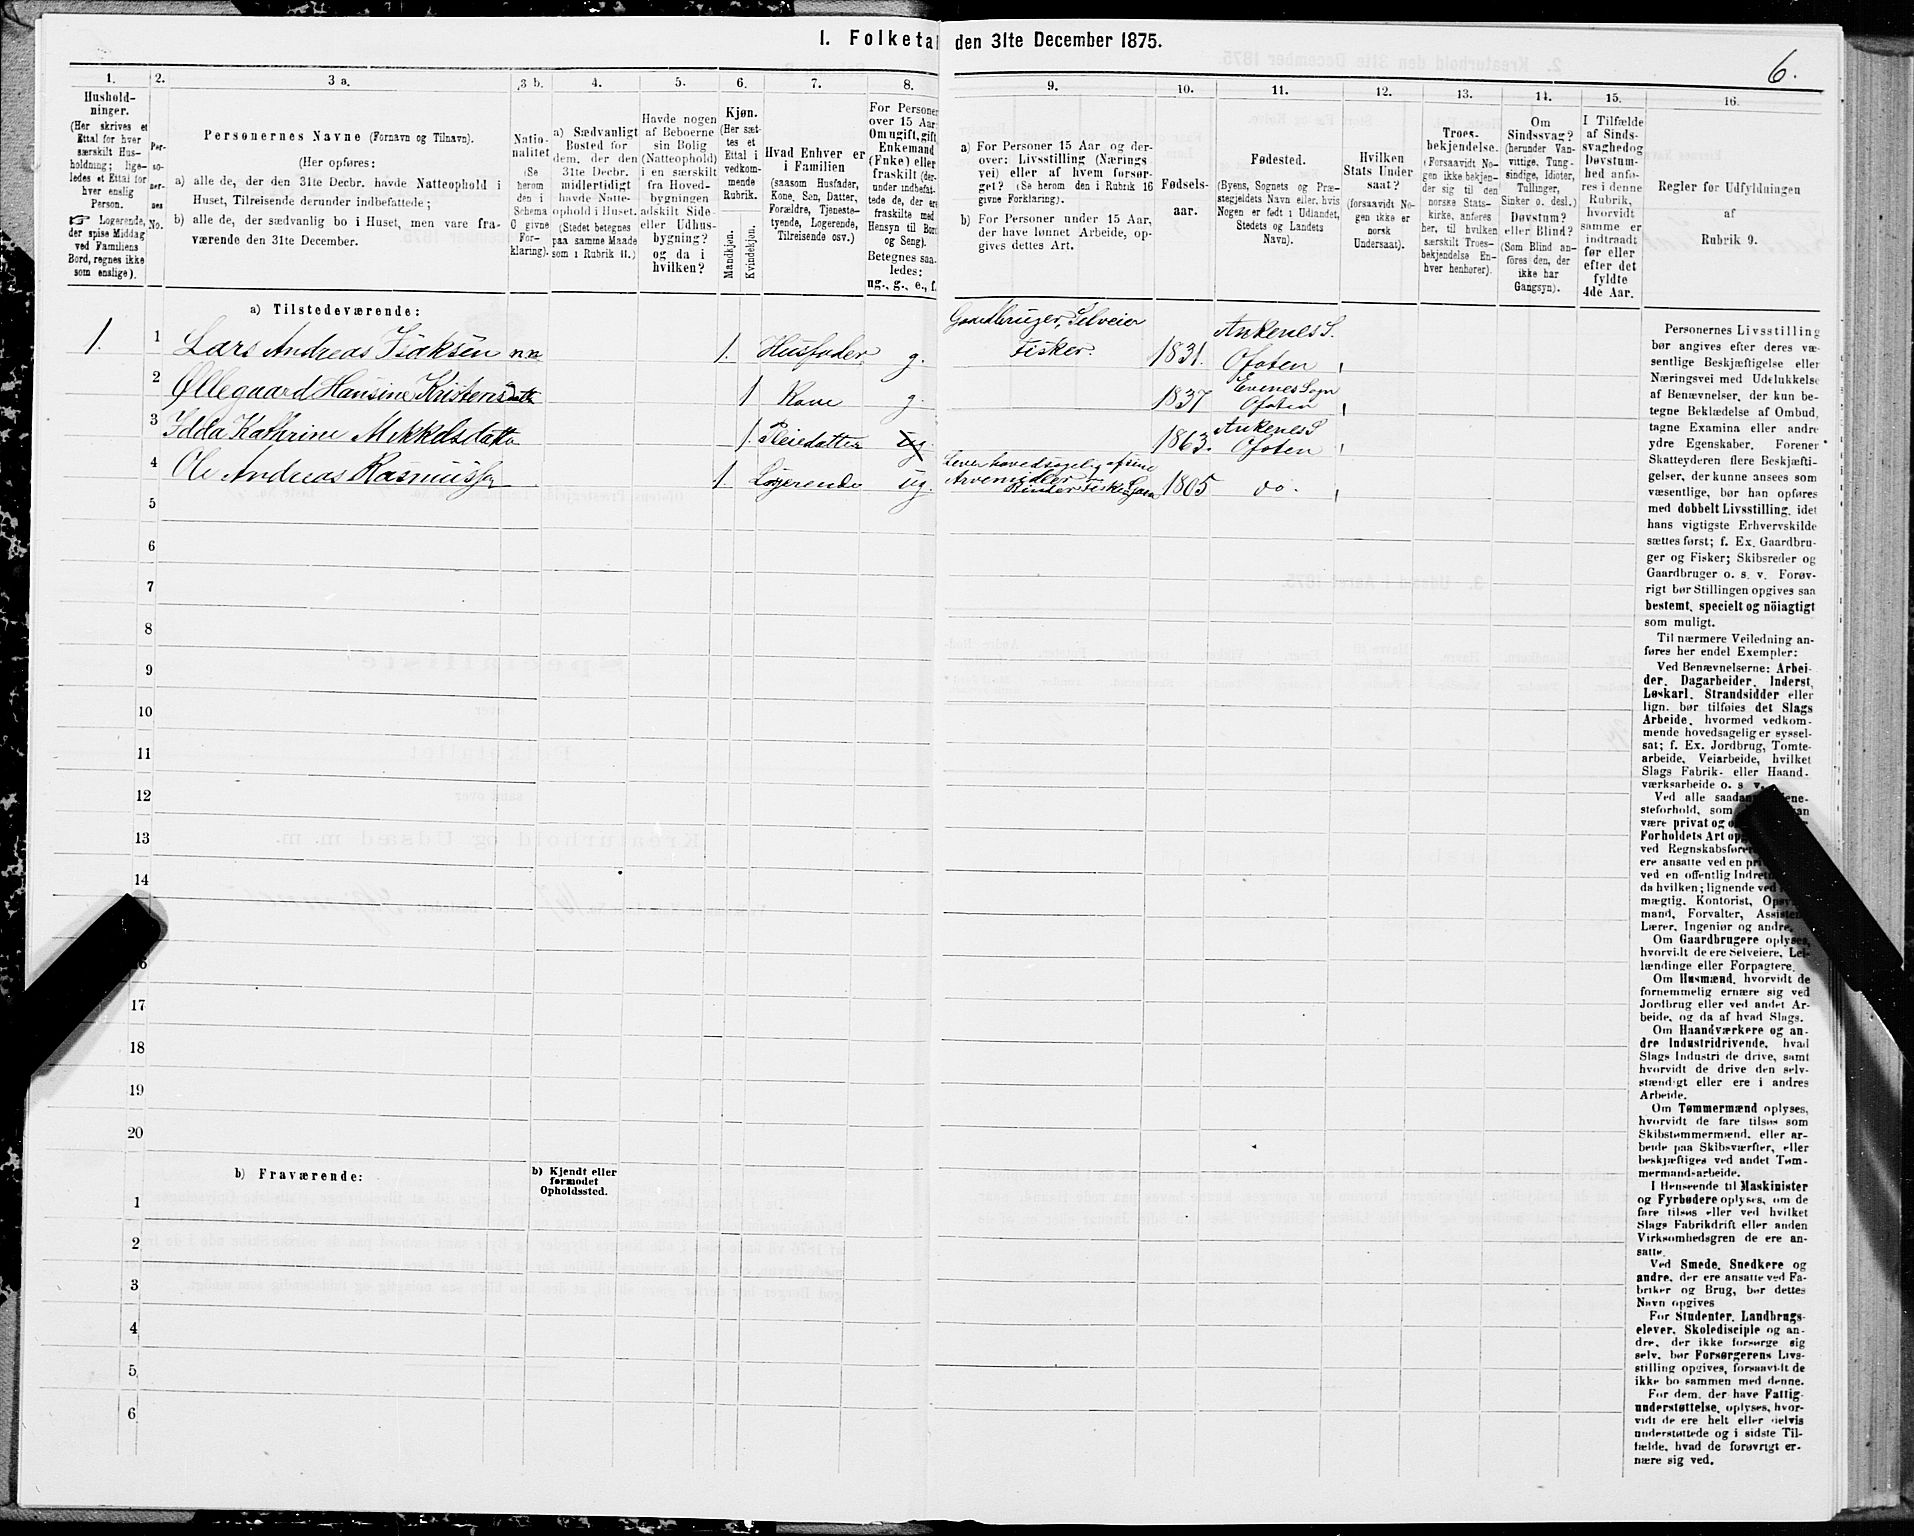 I. Folketal den 31te December 1875.
6.
1.
2.
3 a.
3 b.
4.
5.
6.
7.
8.
9.
10.
11.
12.
13.
14.
15.
16.
Hushold-
ninger.
(Her skrives et
Ettal for hver
særskilt Hus-
holdning; lige-
ledes et Ettal for
hver enslig
Person.
☞ Logerende,
der spise Middag
ved Familiens
Bord, regnes ikke
som enslige).
Per-
so-
ner-
nes
No.
Personernes Navne (Fornavn og Tilnavn).
(Her opføres:
a) alle de, der den 31te Decbr. havde Natteophold i
Huset, Tilreisende derunder indbefattede;
b) alle de, der sædvanlig bo i Huset, men vare fra-
værende den 31te December.
Natio-
nalitet
(Se
herom
den i
Schema
6 givne
For-
klaring).
a) Sædvanligt
Bosted for
dem, der den
31te Decbr.
midlertidigt
havde Natte-
ophold i Huset.
(Stedet betegnes
paa samme Maade
som i Rubrik 11.)
Havde nogen
af Beboerne
sin Bolig
(Natteophold)
i en særskilt
fra Hoved-
bygningen
adskilt Side-
eller Udhus-
bygning?
og da i
hvilken?
Kjøn.
(Her sæt-
tes et
Ettal i
vedkom-
mende
Rubrik.
Mandkjøn.
Kvindekjøn.
Hvad Enhver er
i Familien
(saasom Husfader,
Kone, Søn, Datter,
Forældre, Tjeneste-
tyende, Logerende,
Tilreisende osv.)
For Personer
over 15 Aar:
Om ugift, gift,
Enkemand
(Enke) eller
fraskilt (der-
under indbefat-
tede de, der ere
fraskilte med
Hensyn til Bord
og Seng).
Betegnes saa-
ledes:
ug., g., e., f.
a) For Personer 15 Aar og der-
over: Livsstilling (Nærings-
vei) eller af hvem forsør-
get? (Se herom den i Rubrik 16
givne Forklaring).
b) For Personer under 15 Aar,
der have lønnet Arbeide, op-
gives dettes Art.
Fødsels-
aar.
Fødested.
(Byens, Sognets og Præ-
stegjeldets Navn eller, hvis
Nogen er født i Udlandet,
Stedets og Landets
Navn).
Hvilken
Stats Under
saat?
(forsaavidt No-
gen ikke er
norsk
Undersaat).
Troes-
bekjendelse.
(Forsaavidt No-
gen ikke bekjen-
der sig til den
norske Stats-
kirke, anføres
her, til hvilken
særskilt Troes-
bekjendelse En-
hver henhører).
Om
Sindssvag?
(herunder Van-
vittige, Tung-
sindige, Idioter,
Tullinger,
Sinker o. desl.)
Døvstum?
eller Blind?
(Som Blind an-
føres den, der
ikke har
Gangsyn).
I Tilfælde
af Sinds-
svaghed og
Døvstum-
hed anfø-
res i denne
Rubrik,
hvorvidt
samme er
indtraadt
før eller
efter det
fyldte
4de Aar.
Regler for Udfyldningen
af
Rubrik 9.
a) Tilstedeværende:
1. 1 Lars Andreas Isaksen n.n. 1. Husfader g. Gaardbruger, Selveier Fisker. 1831. Ankenes S. Ofoten
2 Øllegaard Hansine Kristensdatt 1 Kone g. 1837 Evenes Sogn Ofoten
3 Idda Kathrine Mikkelsdatter 1. Pleiedatter ug. 1863. Ankenes S Ofoten
4 Ole Andreas Rasmussen 1 Logerende ug. Lever hovedsagelig af sine Arvemidler 1805 do.
5
6
7
8
9
10
11
12
13
14
16
17
18
19
20
b) Fraværende:
b) Kjendt eller
formodet
Opholdssted.
1
2
3
4
5
6
Personernes Livsstilling
bør angives efter deres væ-
sentlige Beskjæftigelse eller
Næringsvei med Udelukkelse
af Benævnelser, der kun be-
tegne Beklædelse af Ombud,
tagne Examina eller andre
ydre Egenskaber. Forener
Skatteyderen flere Beskjæfti-
gelser, der kunne ansees som
væsentlige, bør han opføres
med dobbelt Livsstilling, idet
hans vigtigste Erhvervskilde
sættes først; f. Ex. Gaardbru-
ger og Fisker; Skibsreder og
Gaardbruger o. s. v. Forøv-
rigt bør Stillingen opgives saa
bestemt, specielt og nöiagtigt
som muligt.
Til nærmere Veiledning an-
føres her endel Exempler:
Ved Benævnelserne: Arbei-
der, Dagarbeider, Inderst,
Løskarl, Strandsidder eller
lign. bør tilføies det Slags
Arbeide, hvormed vedkom-
mende hovedsagelig er syssel-
sat; f. Ex. Jordbrug, Tomte-
arbeide, Veiarbeide, hvilket
Slags Fabrik- eller Haand-
værksarbeide o. s. v.
Ved alle saadan
steforhold, som
være privat og
Forholdets Art
ved Regnskabsføre
ere ansatte ved en
ved en offentlig
da hvilken; lignende ved
mægtig, Kontorist,
mand, Forvalter,
Lærer, Ingeniør og andre.
Om Gaardbrugere oplyses,
hvorvidt de ere Selveiere, Lei-
lændinge eller Forpagtere.
Om Husmænd, hvorvidt de
fornemmelig ernære sig ved
Jordbrug eller ved andet Ar-
beide, og da af hvad Slags.
Om Haandværkere og an-
dre Industridrivende, hvad
Slags Industri de drive, samt
hvorvidt de drive den selv-
stændigt eller ere i andres
Arbeide.
Om Tømmermænd oplyses,
hvorvidt de fare tilsøs som
Skibstømmermænd, eller ar-
beide paa Skibsværfter, eller
beskjæftiges ved andet Tøm-
mermand-arbeide.
I Henseende til Maskinister
og Fyrbødere oplyses, om de
fare tilsøs eller ved hvilket
Slags Fabrikdrift eller anden
Virksomhedsgren de ere an-
satte.
Ved Smede, Snedkere og
andre, der ere ansatte ved Fa-
briker og Brug, bør dettes
Navn opgives
For Studenter, Landbrugs-
elever, Skoledisciple og an-
dre, der ikke forsørge sig
selv, bør Forsørgerens Livs-
stilling opgives, forsaavidt de
ikke bo sammen med denne.
For dem, der have Fattig-
understøttelse, oplyses, hvor-
vidt de ere helt eller delvis
understøttede og i sidste Til-
fælde, hvad de forøvrigt er-
nære sig ved.